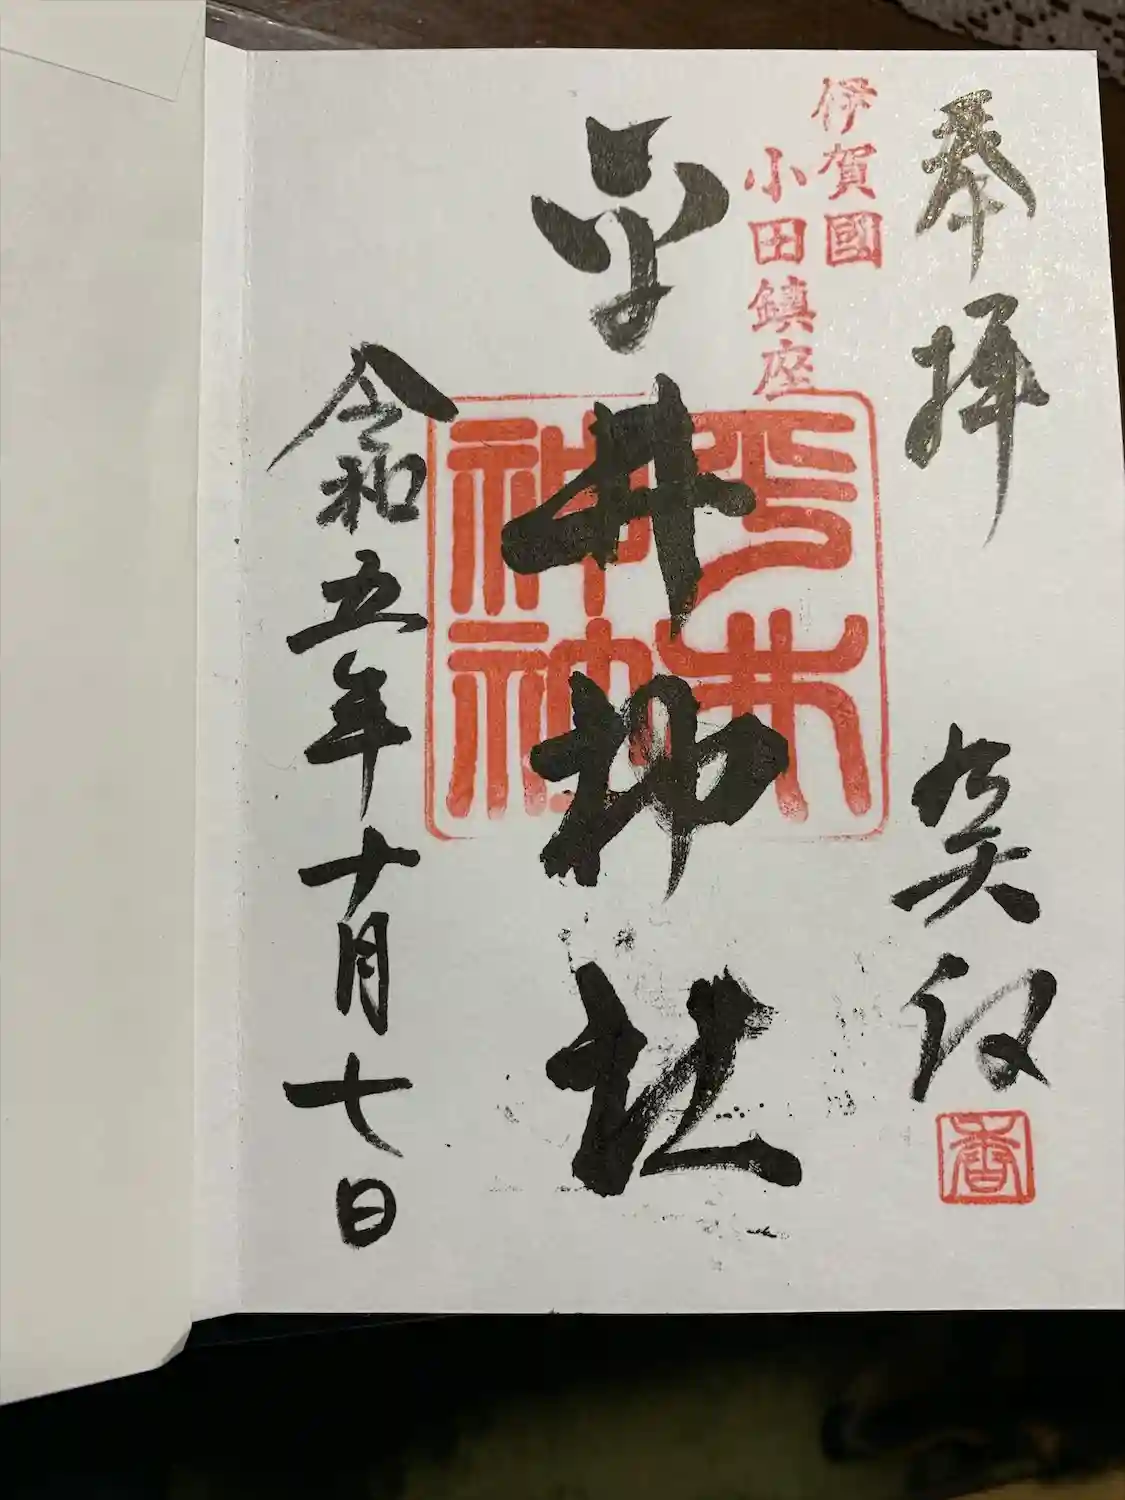 奉拝
癸卯
伊賀國
小田鎮座
平井神社
平井神社
令和五年十月七日